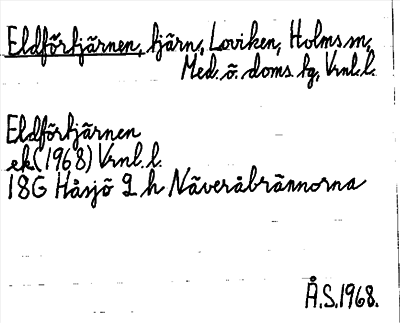 Eldförtjärnen, tjärn, Loviken, Holms sn,
Med. ö. doms. hg, Vrnl. l.
Eldförtjärnen
ek (1968) Vrnl. l.
18G Håsjö 9 h Näveråbrännorna
Å.S. 1968.